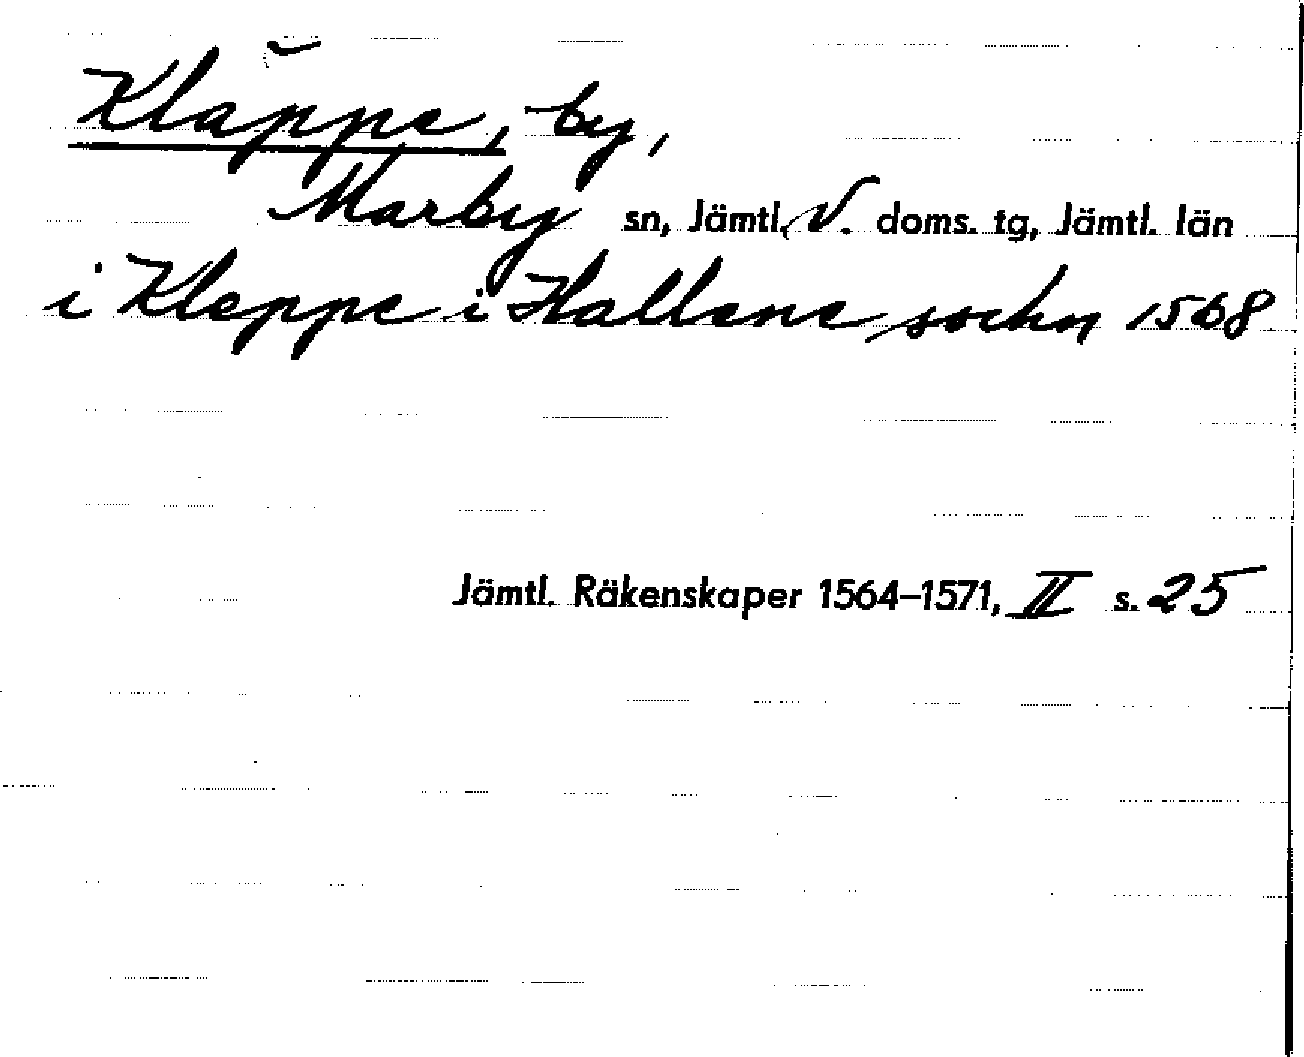 Kläppe, by,
Marby sn, Jämtl. V. doms. tg, Jämtl. län
i Kleppe i Hallene sochn 1568
Jämtl. Räkenskaper 1564–1571, II s. 25